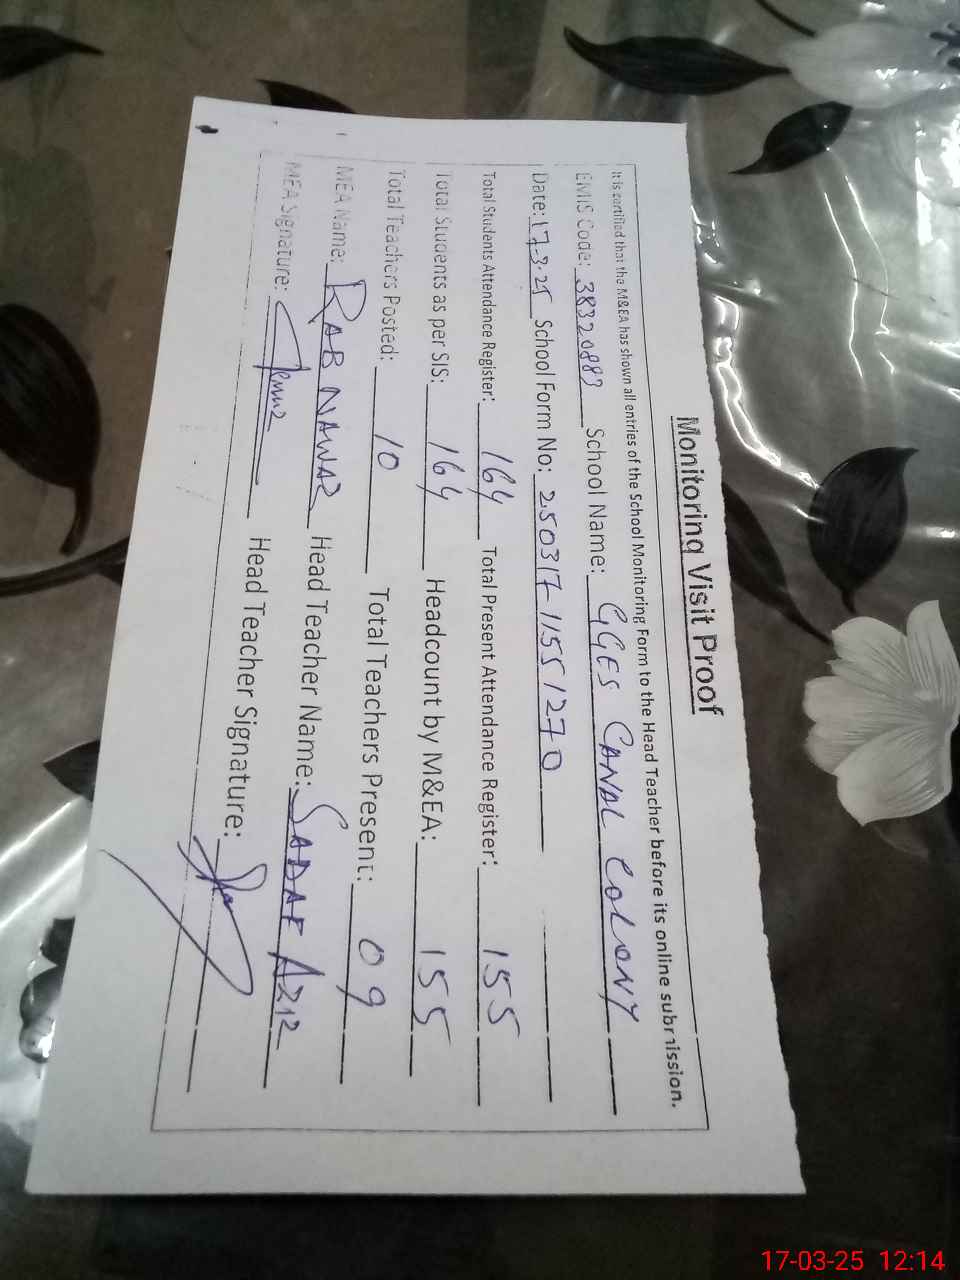 Monitoring Visit Proof
It is certified that the M&EA has shown all entries of the School Monitoring Form to the Head Teacher before its online submission.
EMIS Code: 38320889 School Name: GGES CANAL COLONY
Date: 17-3-25 School Form No: 250317-11551270
Total Students Attendance Register: 164 Total Present Attendance Register: 155
Total Students as per SIS: 164 Headcount by M&EA: 155
Total Teachers Posted: 10 Total Teachers Present: 09
MEA Name: RAB NAWAZ Head Teacher Name: SADAF AZIZ
MEA Signature: Head Teacher Signature:
17-03-25 12:14